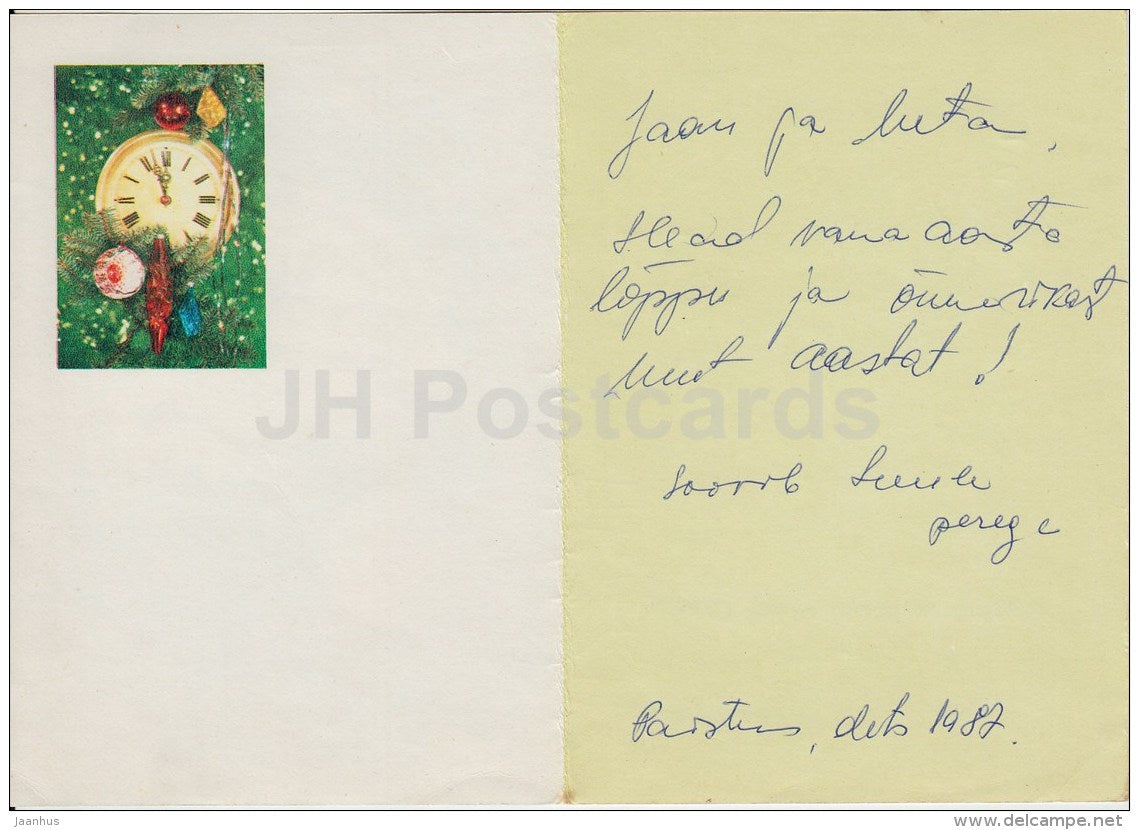 Jaan ja Meta,
Head vana aasta
lõppu ja õnnerikast
uut aastat!
JH Postcards
soovib
perega
Paistus, dets 1987.
Jaanhus
delcampe.net